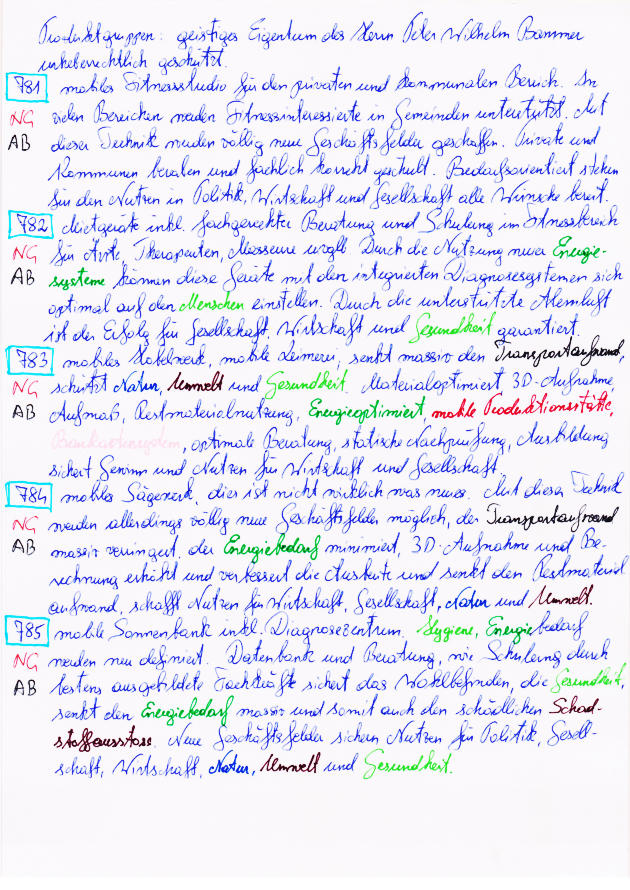 Produktgruppen: geistiges Eigentum des Herrn Peter Wilhelm Bammer
urheberrechtlich geschützt.
781 mobiles Fitnessstudio für den privaten und kommunalen Bereich. In
NG vielen Bereichen werden Fitnessinteressierte in Gemeinden unterstützt. Mit
AB dieser Technik wurden völlig neue Geschäftsfelder geschaffen. Private und
Kommunen beraten und fachlich korrekt geschult. Bedarfsorientiert stehen
für den Nutzen in Politik, Wirtschaft und Gesellschaft alle Wünsche bereit.
782 Mietgeräte inkl. fachgerechter Beratung und Schulung im Fitnessbereich
NG für Ärzte, Therapeuten, Masseure usw. Durch die Nutzung neuer Energie-
AB systeme können diese Geräte mit den integrierten Diagnosesystemen sich
optimal auf den Menschen einstellen. Durch die unterstützte Atemluft
ist der Erfolg für Gesellschaft, Wirtschaft und Gesundheit garantiert.
783 mobiles Hobelwerk, mobile Leimerei, senkt massiv den Transportaufwand,
NG schützt Natur, Umwelt und Gesundheit. Materialoptimiert 3D-Aufnahme,
AB Aufmaß, Restmaterialnutzung, Energieoptimiert, mobile Produktionsstätte,
Baukastensystem, optimale Beratung, statische Nachprüfung, Ausbildung
sichert Gewinn und Nutzen für Wirtschaft und Gesellschaft.
784 mobiles Sägewerk, dies ist nicht wirklich was neues. Mit dieser Technik
NG werden allerdings völlig neue Geschäftsfelder möglich, der Transportaufwand
AB massiv verringert, der Energiebedarf minimiert, 3D-Aufnahme und Be-
rechnung erhöht und verbessert die Ausbeute und senkt den Restmaterial
aufwand, schafft Nutzen für Wirtschaft, Gesellschaft, Natur und Umwelt.
785 mobile Sonnenbank inkl. Diagnosezentrum, Hygiene, Energiebedarf
NG werden neu definiert. Datenbank und Beratung, wie Schulung durch
AB bestens ausgebildete Fachkräfte sichert das Wohlbefinden, die Gesundheit,
senkt den Energiebedarf massiv und somit auch den schädlichen Schad-
stoffausstoss. Neue Geschäftsfelder sichern Nutzen für Politik, Gesell-
schaft, Wirtschaft, Natur, Umwelt und Gesundheit.